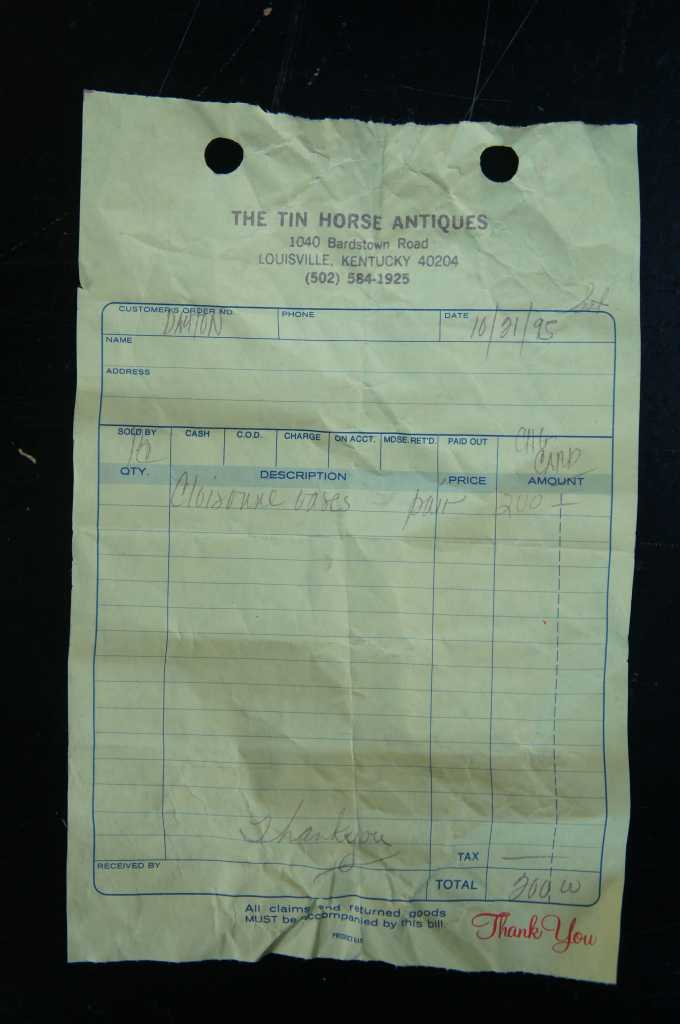 THE TIN HORSE ANTIQUES
1040 Bardstown Road
LOUISVILLE, KENTUCKY 40204
(502) 584-1925
CUSTOMER'S ORDER NO. DAYTON PHONE DATE 10/21/95
NAME
ADDRESS
SOLD BY CASH C.O.D. CHARGE ON ACCT. MDSE. RET'D. PAID OUT CHG
CARD
QTY. DESCRIPTION PRICE AMOUNT
Cloisonne vases pair 200 —
Thankyou
TAX —
RECEIVED BY
TOTAL 200
All claims and returned goods
MUST be accompanied by this bill.
Thank You